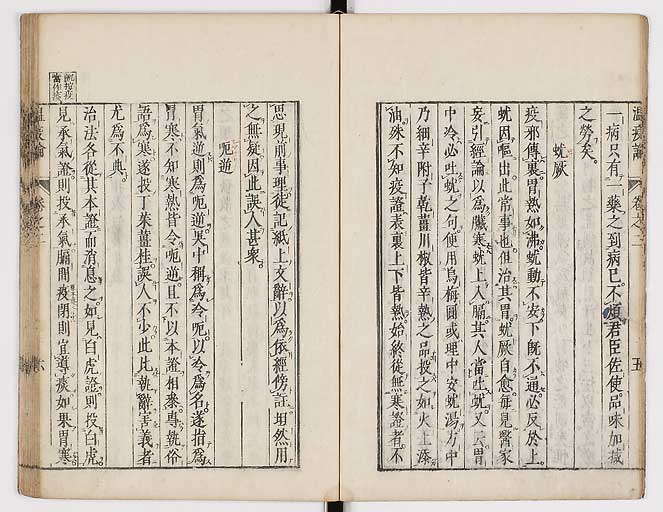 一病只有一藥之到病已不煩君臣佐使品味加減
之勞矣
蚘厥
疫邪傳裏胃熱如沸蚘動不安下既不通必反於上
蚘因嘔出此常事也但治其胃蚘厥自愈每見醫家
妄引經論以為臟寒蚘上入膈其人當吐蚘又云胃
中冷必吐蚘之句便用烏梅圓或理中安蚘湯方中
乃細辛附子乾薑川椒皆辛熱之品投之如火上添
油殊不知疫證表裏上下皆熱始終從無寒證者不
温疫論
卷之二
五
思現前事理徒記紙上文辭以為依經傍註坦然用
之無疑因此誤人甚衆
呃逆
胃氣逆則為呃逆吳中稱為冷呃以冷為名遂指為
胃寒不知寒熱皆令呃逆且不以本證相參專執俗
語為寒遂投丁茱薑桂誤人不少此比執辭害義者
尤為不典
治法各從其本證而消息之如見白虎證則投白虎
見承氣證則投承氣膈間疫閉則宜導痰如果胃寒
疫當作痰
温疫論
卷之二
六